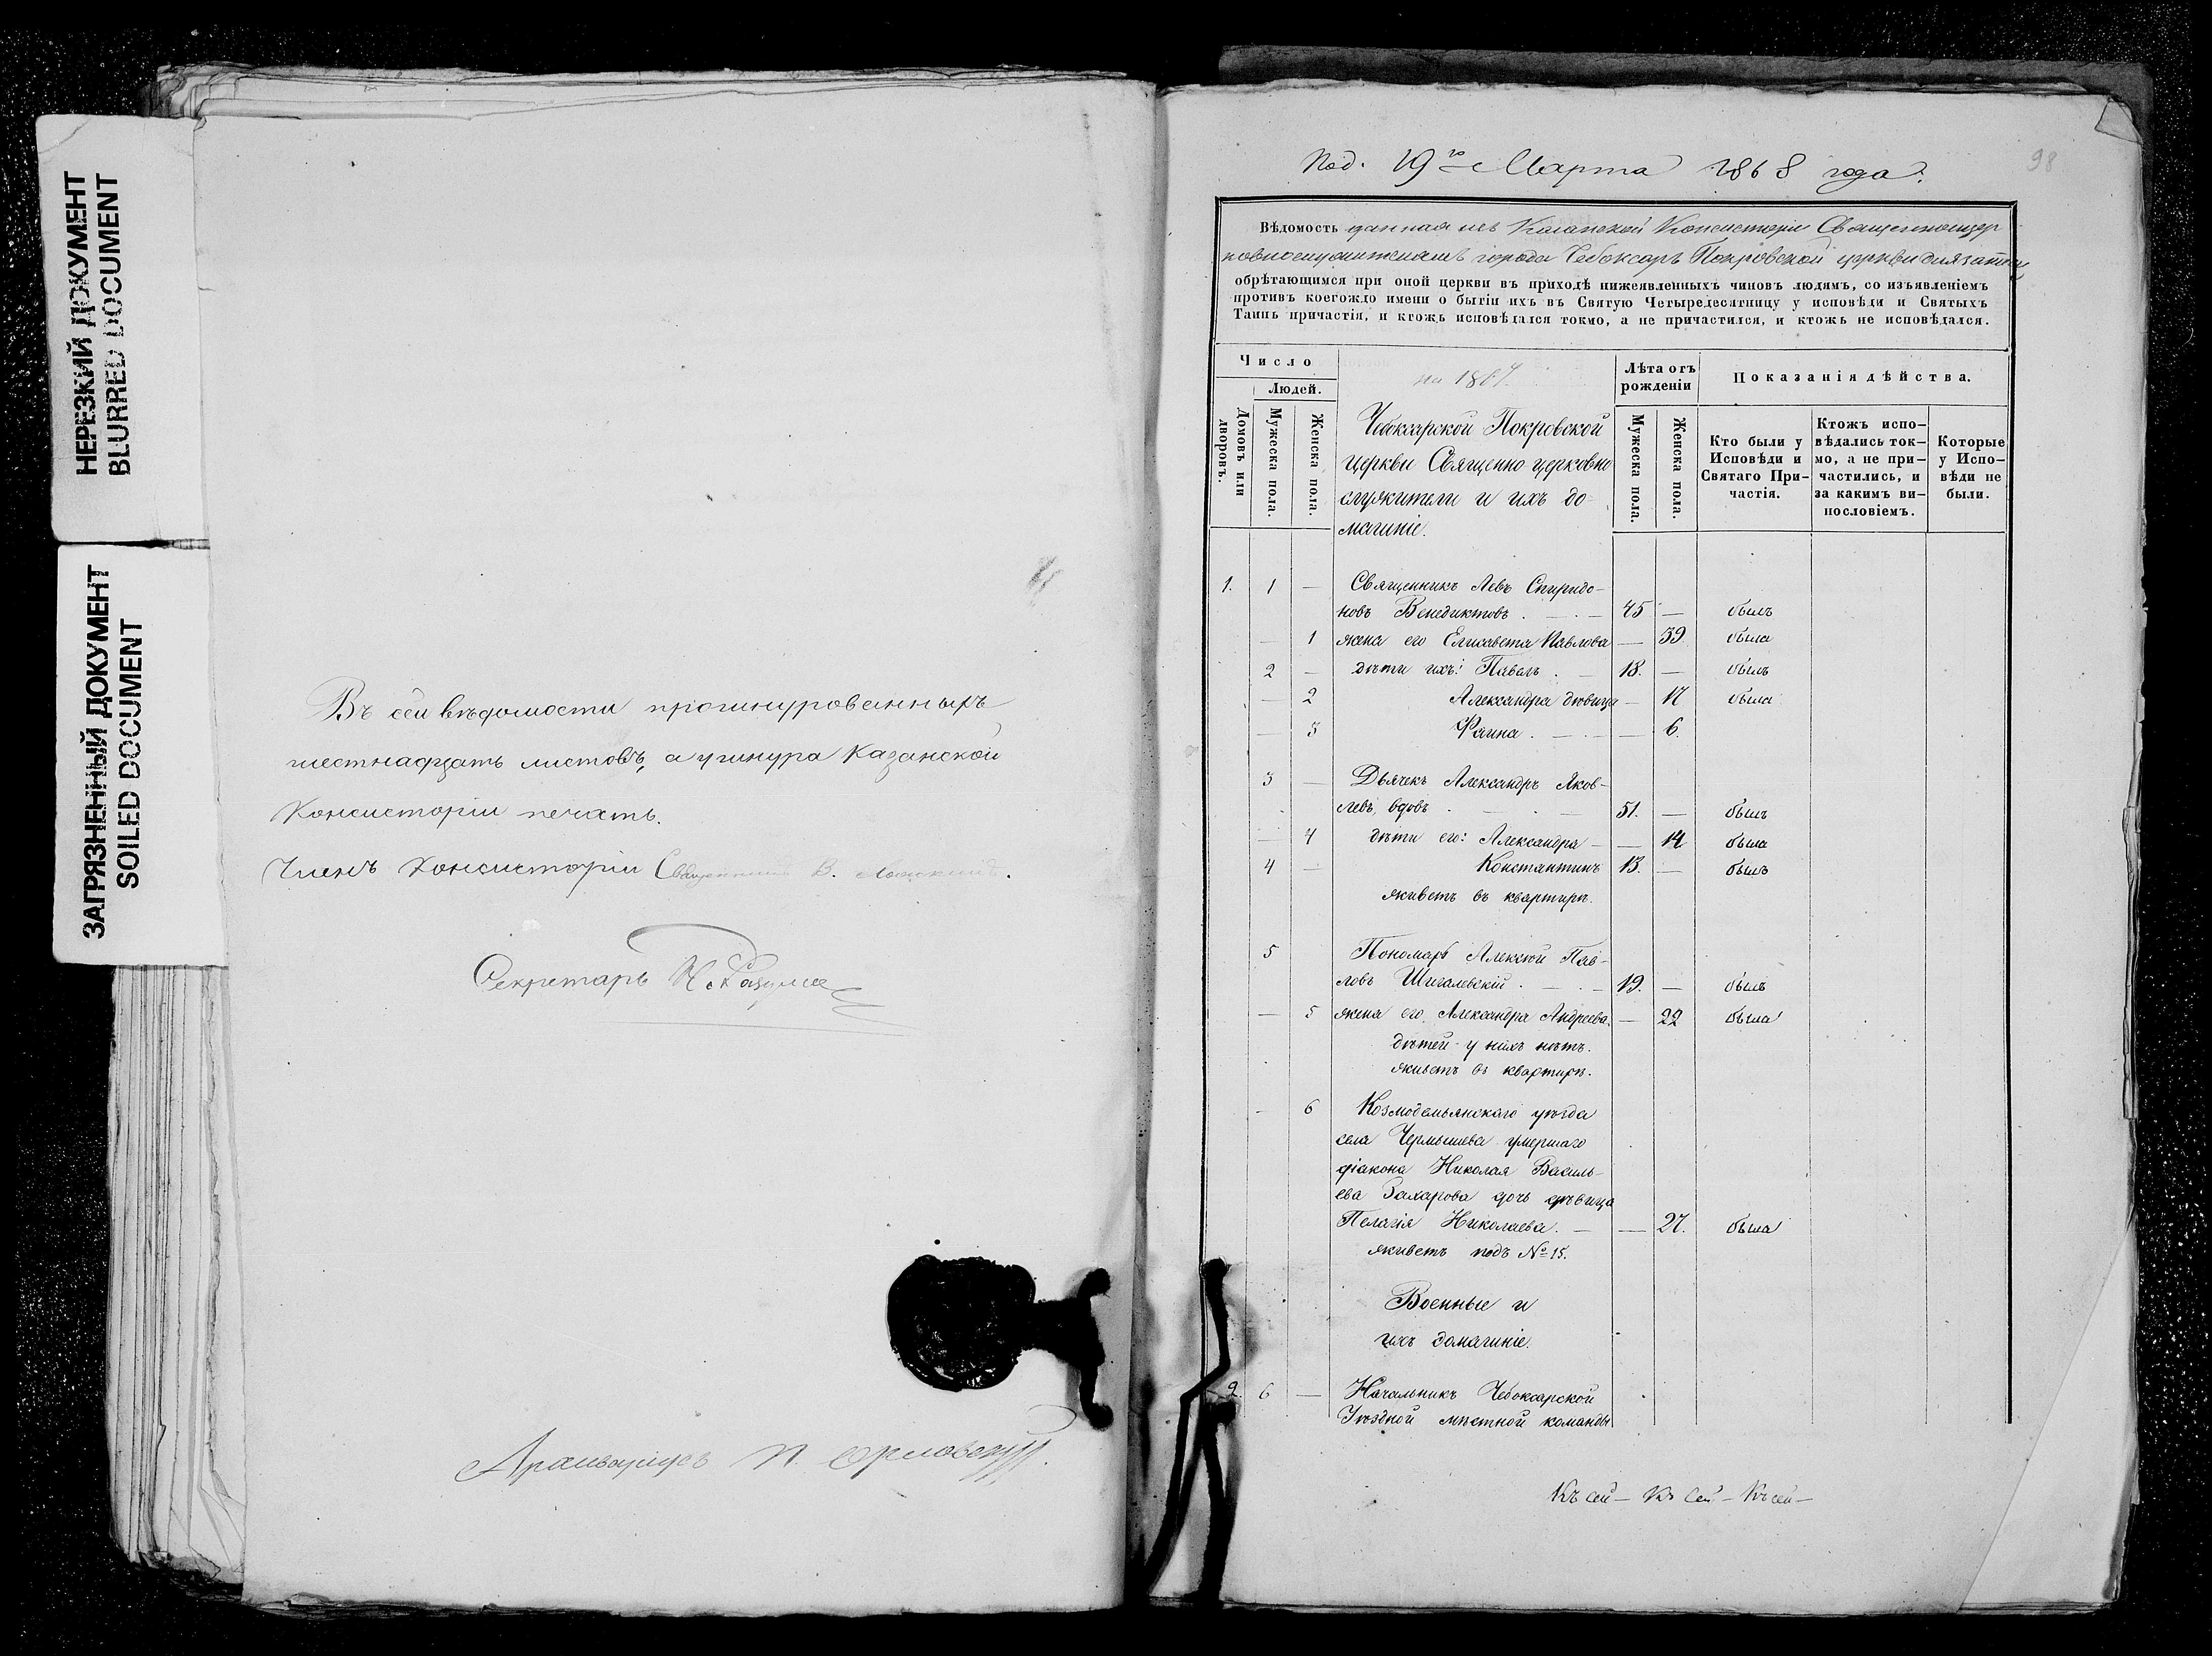 НЕРЕЗКИЙ ДОКУМЕНТ
BLURRED DOCUMENT
ЗАГРЯЗНЕННЫЙ ДОКУМЕНТ
SOILED DOCUMENT
Въ сей вѣдомости прошнурованныхъ
шестнадцать листовъ, а у шнура Казанской
Консисторіи печать.
Членъ Консисторіи Священникъ В.
Секретарь
Архиваріусъ П. Орловскій.
98
Под. 19го Марта 1868 года.
Вѣдомость данная изъ Казанской Консисторіи Священноцер
ковнослужителямъ города Чебоксаръ Покровской церкви для записи
обрѣтающимся при оной церкви въ приходѣ нижеявленныхъ чиновъ людямъ, со изъявленіемъ
противъ коегождо имени о бытіи ихъ въ Святую Четыредесятницу у исповѣди и Святыхъ
Таинъ причастія, и ктожъ исповѣдался токмо, а не причастился, и ктожь не исповѣдался.
Число
Людей.
Домовъ или дворовъ.
Мужеска пола.
Женска пола.
на 1867.
Чебоксарской Покровской
церкви Священно церковно
служители и ихъ до=
машніе.
Лѣта отъ рожденіи
Мужеска пола.
Женска пола.
Показанія дѣйства.
Кто были у Исповѣди и Святаго Причастія.
Ктожъ исповѣдались токмо, а не причастились, и за какимъ винословіемъ.
Которые у Исповѣди не были.
1. 1 — Священникъ Левъ Спиридо-
новъ Венедиктовъ . — . — 45 — былъ
— 1 жена его Елисавета Павлова — 39. была
2 — дѣти ихъ: Павелъ . — 18. — былъ
— 2 Александра дѣвица — 17 была
— 3 Фаина . — . — — 6.
3 — Дьячекъ Александръ Яков-
левъ, вдовъ . — . — 51. — былъ
— 4 дѣти его: Александра — — 14 была
4 — Константинъ 13. — былъ
живетъ въ квартирѣ.
5 Пономарь Алексѣй Пав-
ловъ Шигалевскій . — . — 19. — былъ
— 5 жена его Александра Андреева. — 22 была
дѣтей у нихъ нѣтъ.
живетъ въ квартирѣ.
- 6 Козмодемьянскаго уѣзда
села Чермышева умершаго
діакона Николая Василь-
ева Захарова дочь дѣвица
Пелагія Николаева. — — 27. была
живетъ подъ № 15.
Военные и
ихъ домашніе.
2. 6 — Начальникъ Чебоксарской
Уѣздной мѣстной команды
Къ сей — Къ сей — Къ сей —